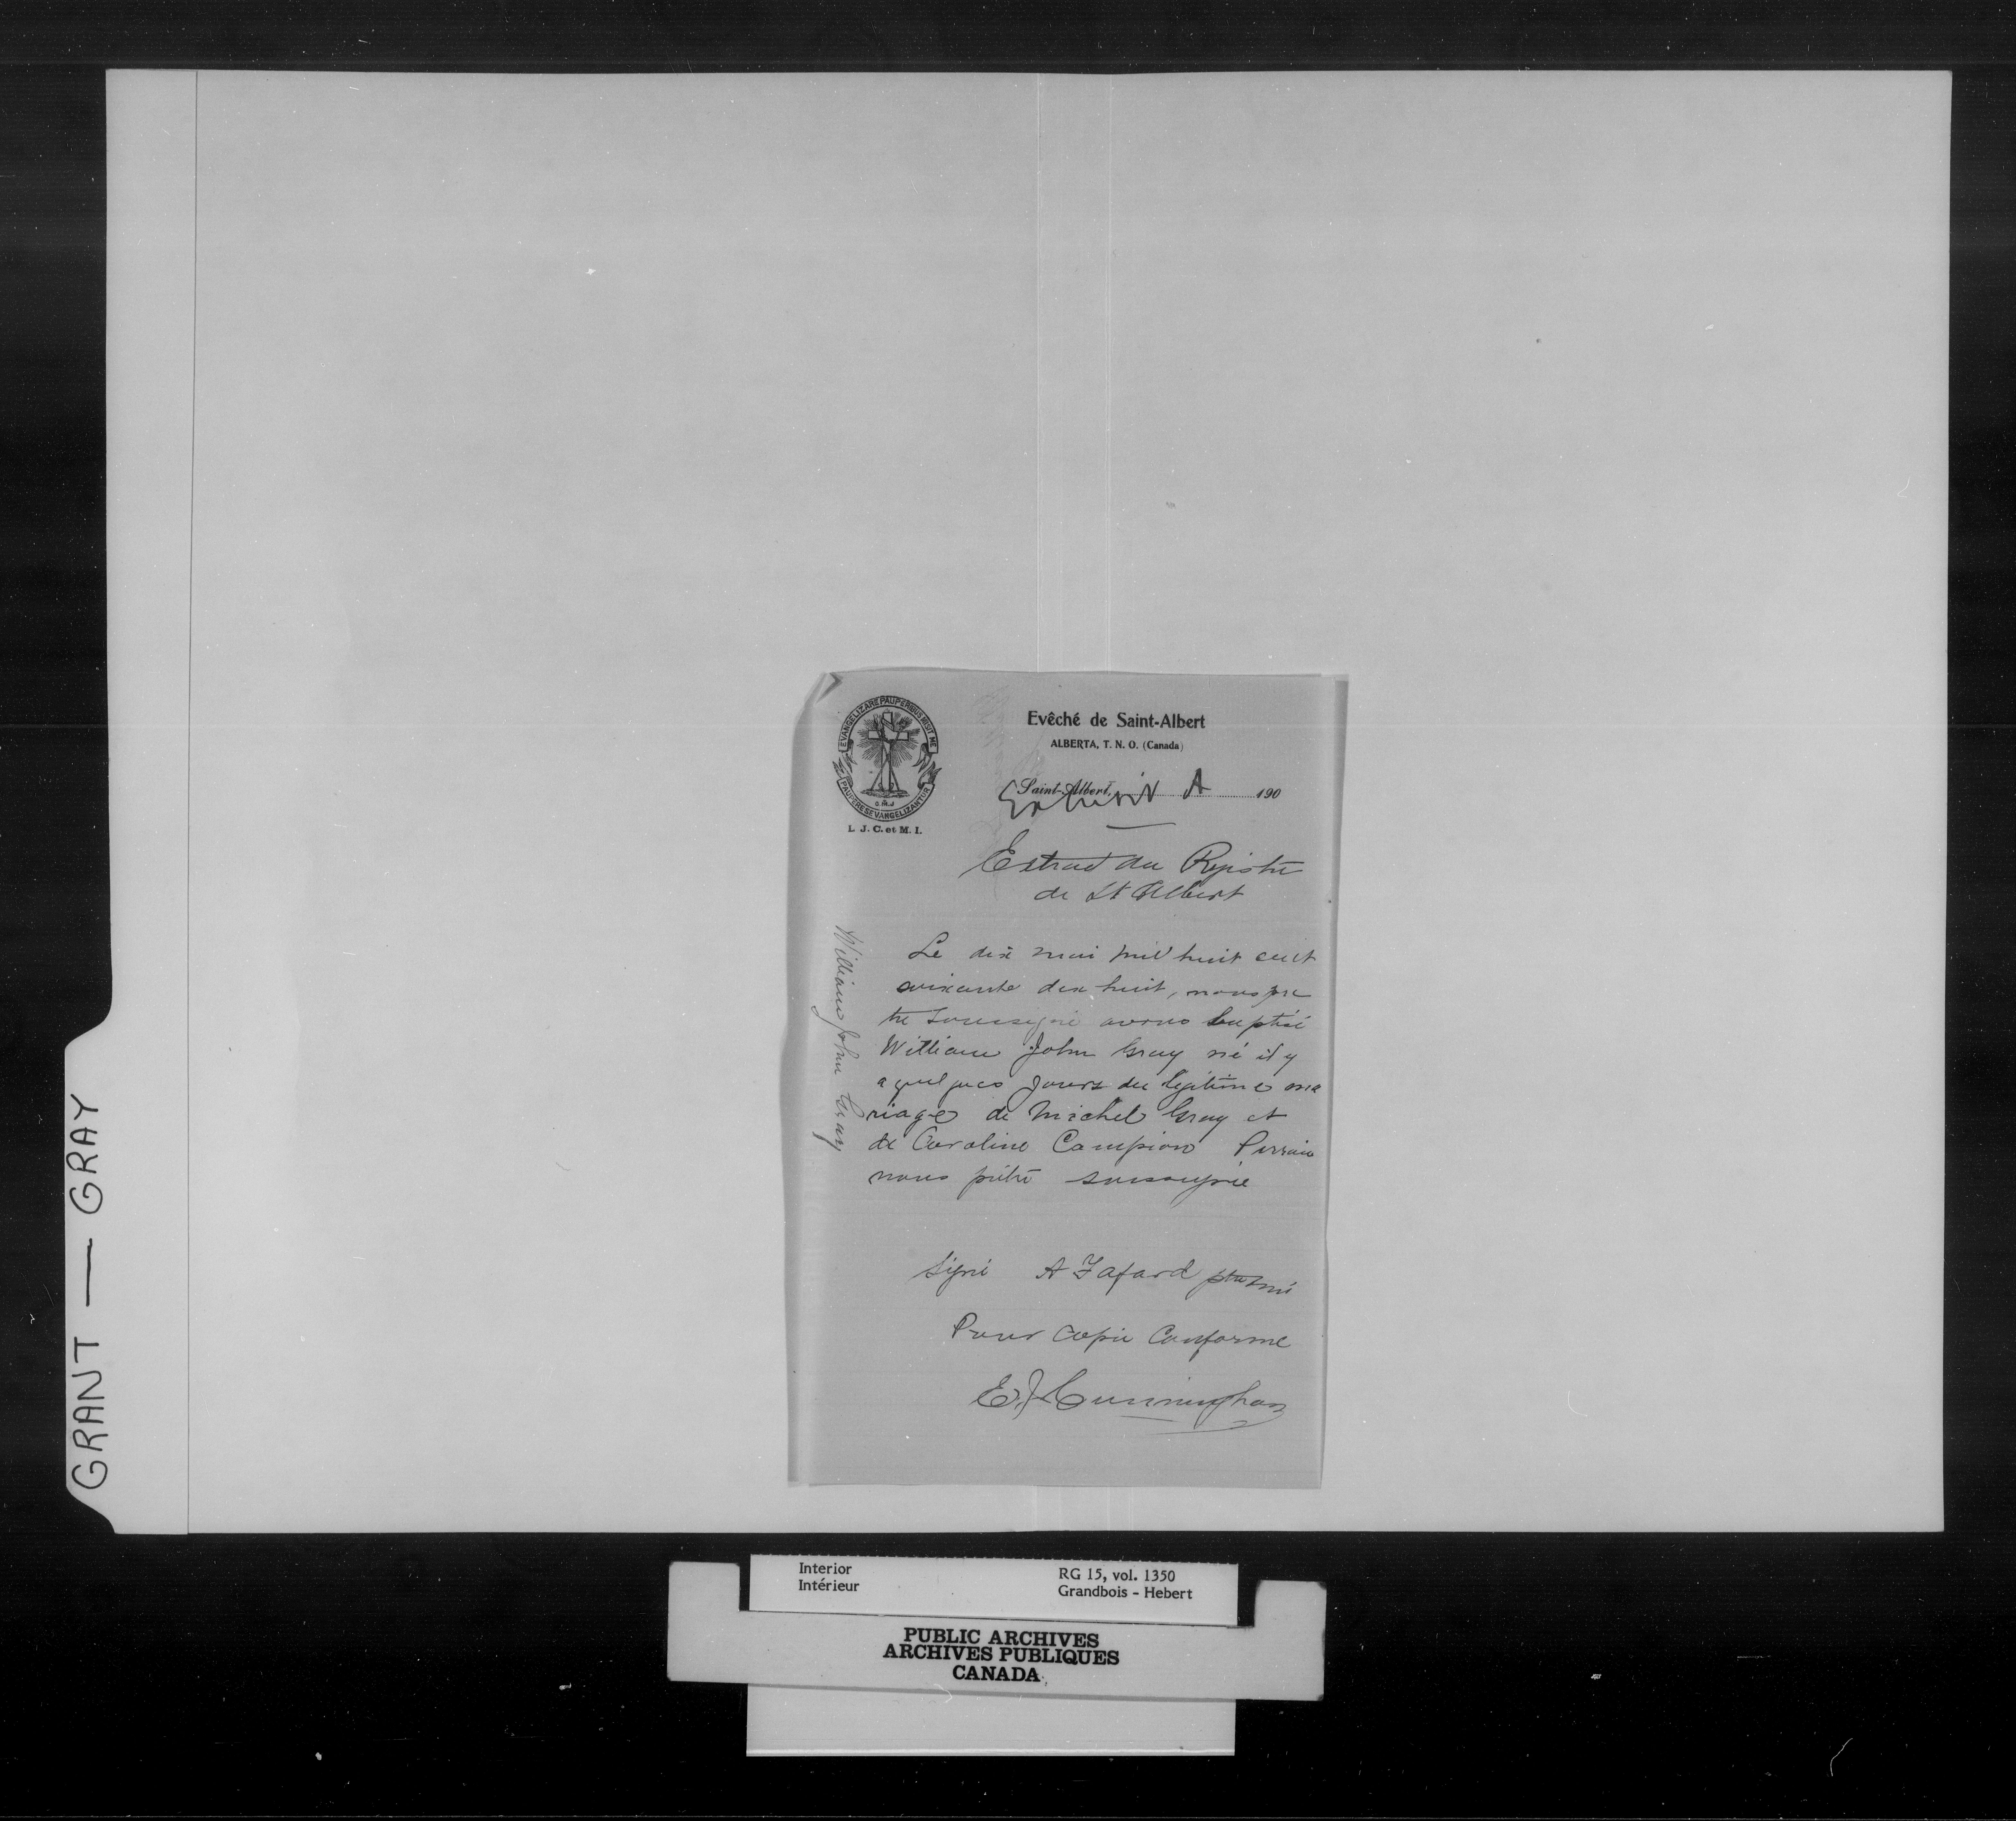 GRANT — GRAY
EVANGELIZARE PAUPERIBUS MISIT ME
PAUPERES EVANGELIZANTUR
O.M.J
L. J. C. et M. I.
Evêché de Saint-Albert
ALBERTA, T. N. O. (Canada)
Saint-Albert, 190
Exhibit A
Extrait du Registre
de St Albert
William John Gray
Le dix mai mil huit cent
soixante dix huit, nous prê
tre soussigné avons baptisé
William John Gray né il y
a quelques jours du légitime ma
riage de Michel Gray et
de Caroline Campion Parrain
nous prêtre soussigné
Signé A Fafard ptre omi
Pour copie Conforme
E. J. Cunningham
Interior
Intérieur
RG 15, vol. 1350
Grandbois - Hebert
PUBLIC ARCHIVES
ARCHIVES PUBLIQUES
CANADA